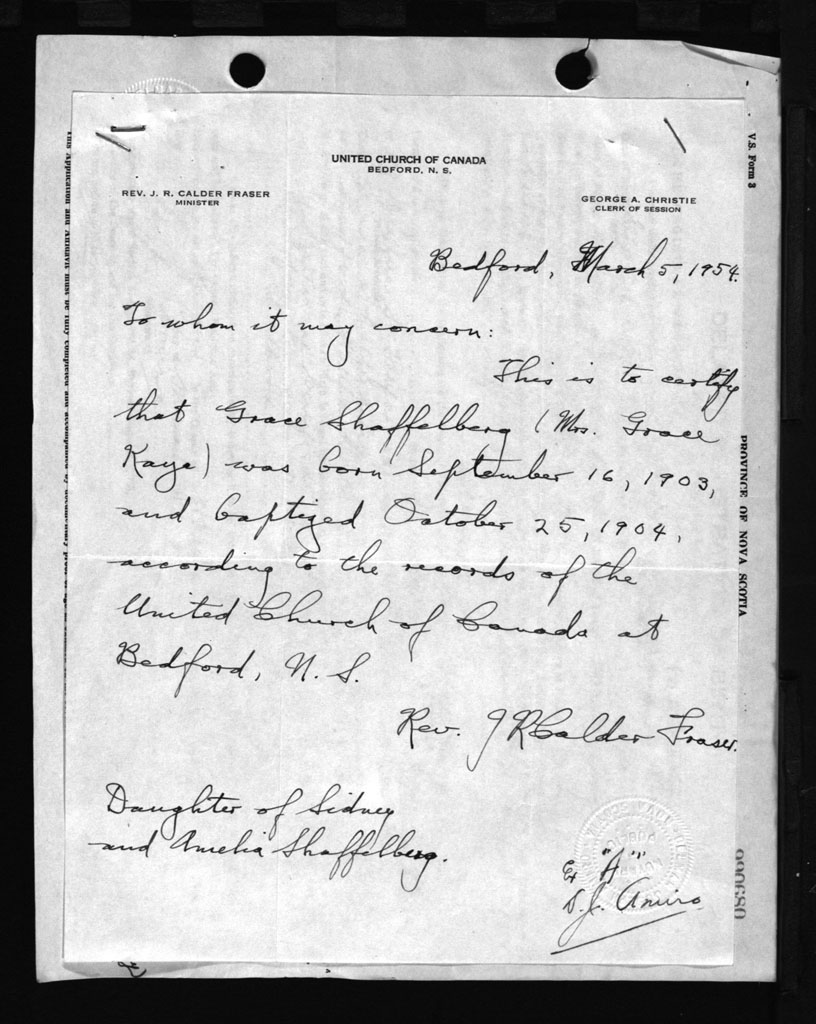 UNITED CHURCH OF CANADA
BEDFORD, N. S.
REV. J. R. CALDER FRASER
MINISTER
GEORGE A. CHRISTIE
CLERK OF SESSION
Bedford, March 5, 1954.
To whom it may concern:
This is to certify
that Grace Shaffelberg (Mrs. Grace
Kaye) was born September 16, 1903,
and baptized October 25, 1904,
according to the records of the
United Church of Canada at
Bedford, N. S.
Rev. J R Calder Fraser.
Daughter of Sidney
and Amelia Shaffelberg.
Ex "A"
D. J. Amiro
V.S. Form 3
PROVINCE OF NOVA SCOTIA
089066